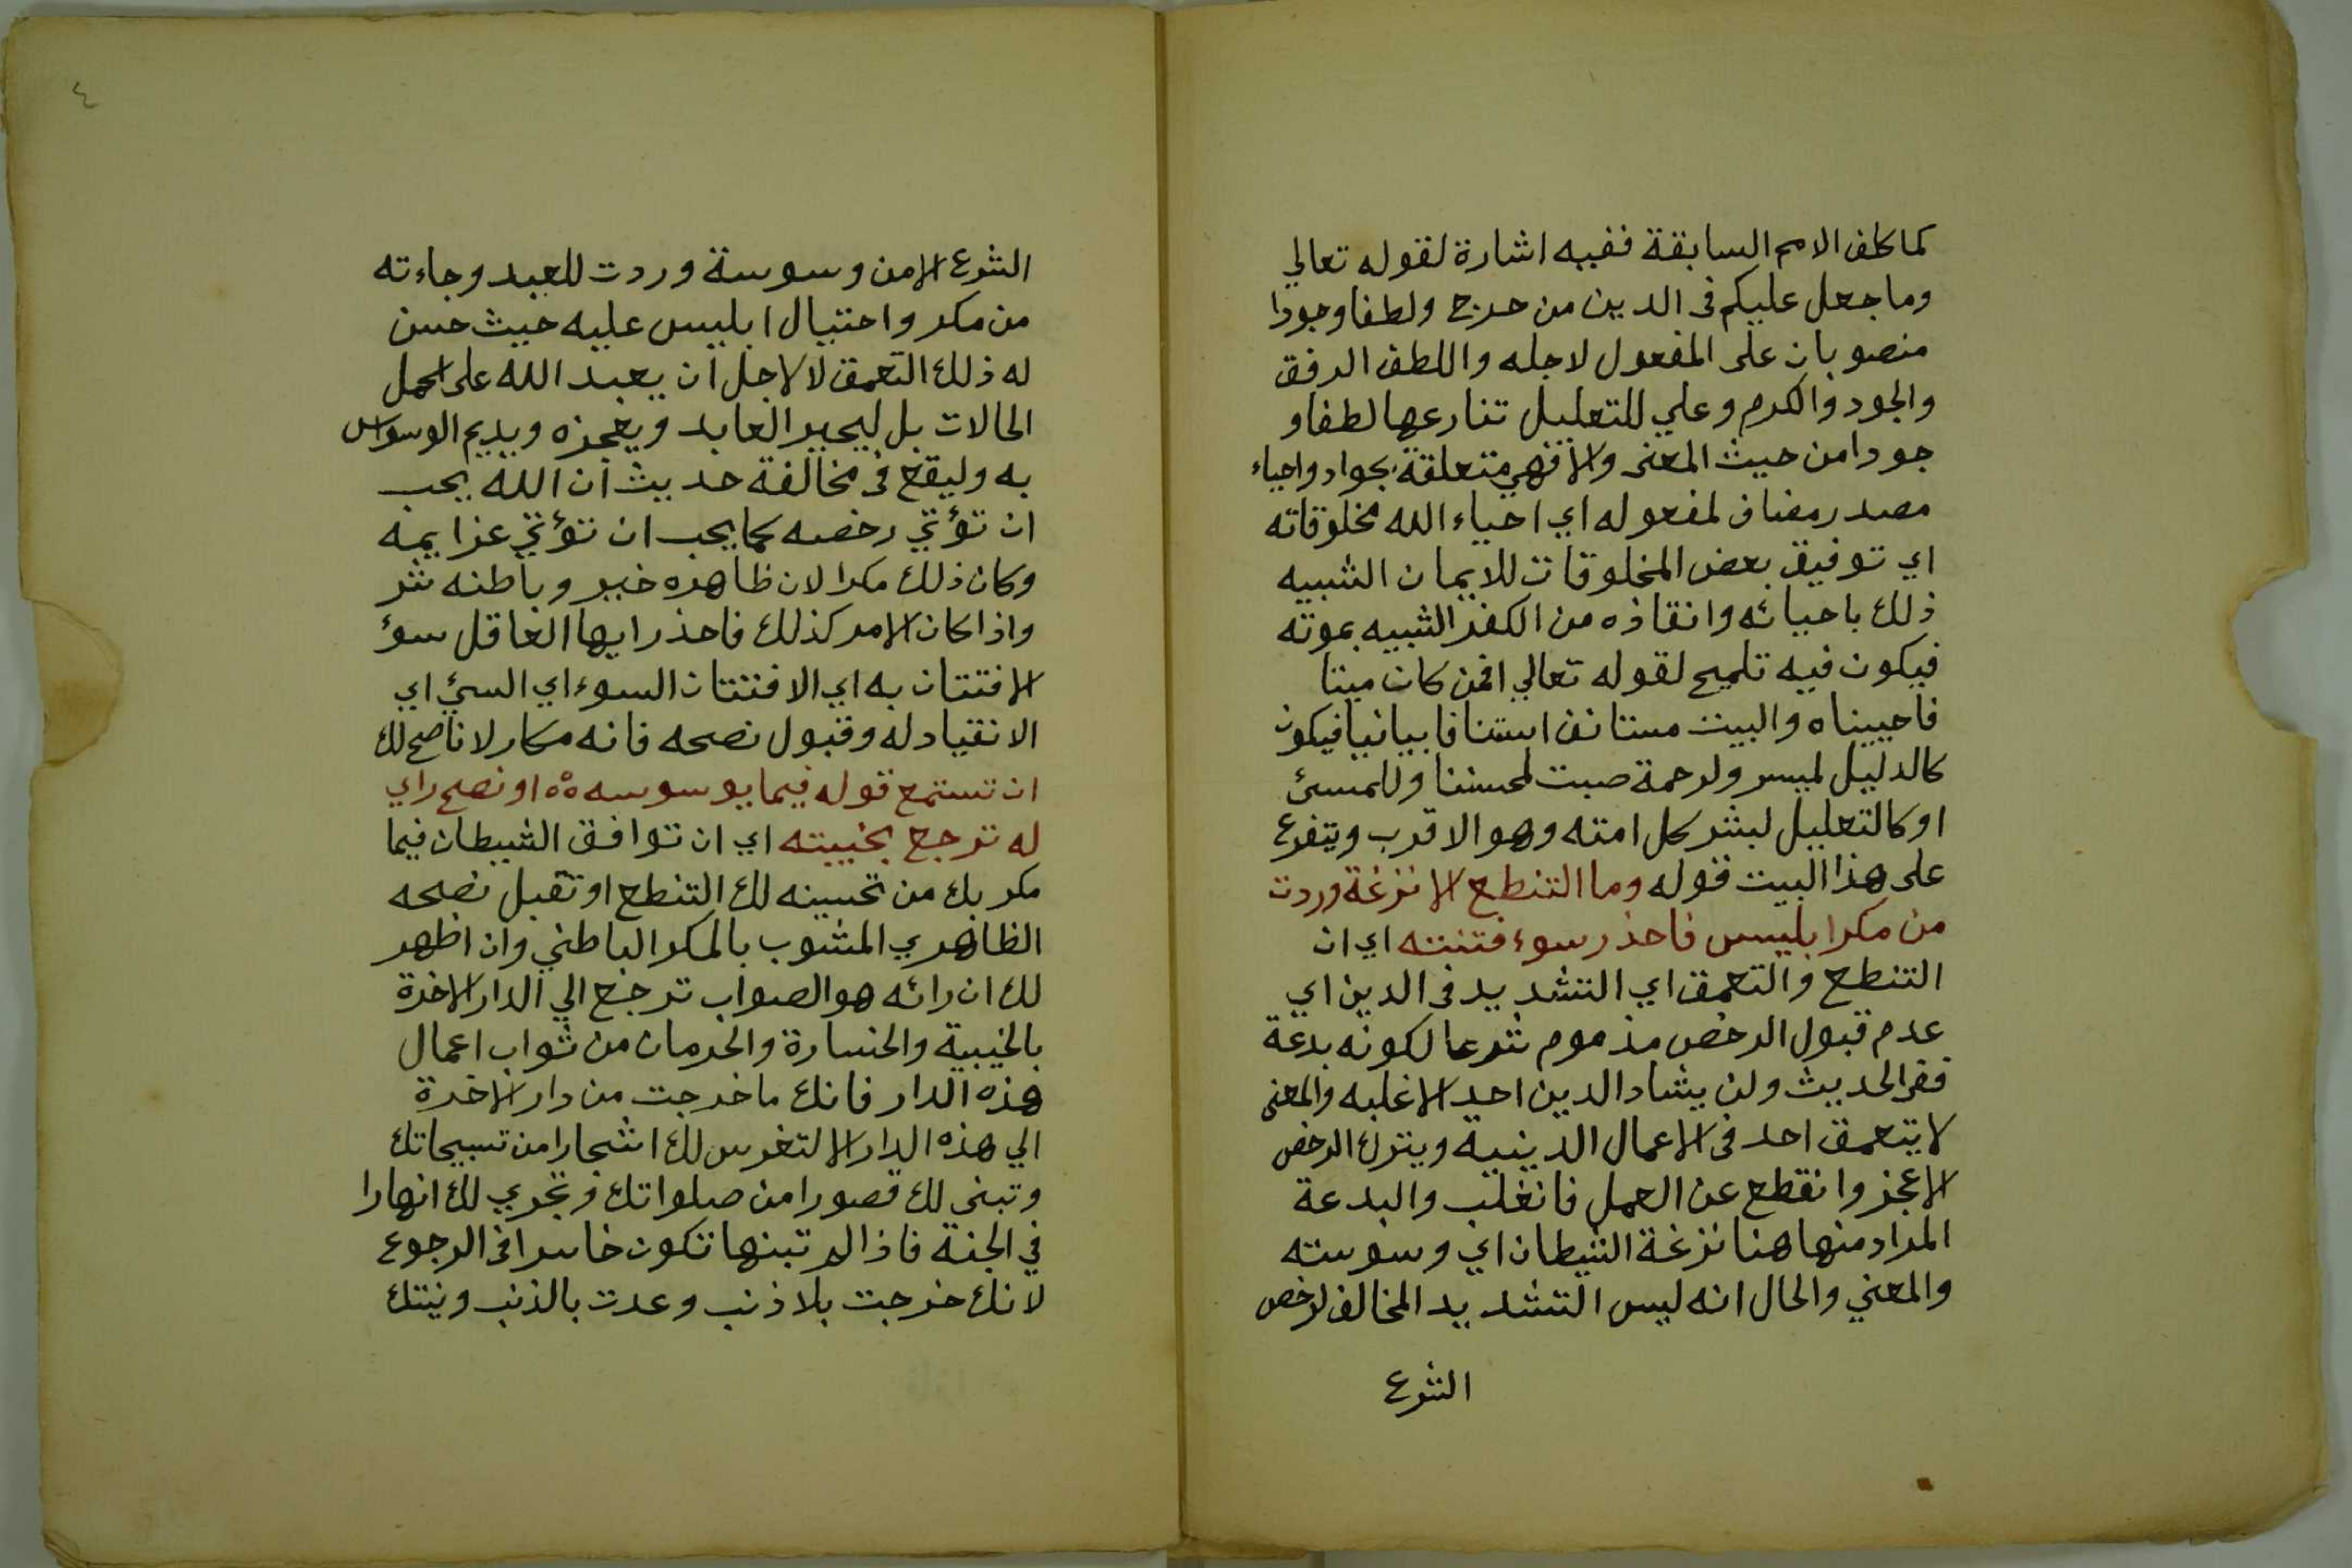 كما كلف الامم السابقة ففيه اشارة لقوله تعالي
وما جعل عليكم فى الدين من حرج ولطفا وجودا
منصوبان على المفعول لاجله واللطف الرفق
والجود والكرم وعلي للتعليل تنازعها لطفا و
جودا من حيث المعنى والا فهي متعلقة بجواد واحياء
مصدر مضاف لمفعوله اي احياء الله مخلوقاته
اي توفيق بعض المخلوقات للايمان الشبيه
ذلك باحيائه وانقاذه من الكفر الشبيه بموته
فيكون فيه تلميح لقوله تعالي افمن كان ميتا
فاحييناه والبيت مستانف استنافا بيانيا فيكون
كالدليل لميسر ولرحمة صبت لمحسننا وللمسئ
او كالتعليل لبشر كل امته وهو الاقرب ويتفرع
على هذا البيت قوله وما التنطع الا نزغة وردت
من مكر ابليس فاحذر سوء فتنته اي ان
التنطع والتعمق اي التشديد فى الدين اي
عدم قبول الرخص مذموم شرعا لكونه بدعة
ففى الحديث ولن يشاد الدين احد الا غلبه والمعنى
لا يتعمق احد فى الاعمال الدينية ويترك الرخص
الا عجز وانقطع عن العمل فانغلب والبدعة
المراد منها هنا نزغة الشيطان اي وسوسته
والمعني والحال انه ليس التشديد المخالف لرخص
الشرع
٤
الشرع الا من وسوسة وردت للعبد وجاءته
من مكر واحتيال ابليس عليه حيث حسن
له ذلك التعمق لا لاجل ان يعبد الله على اكمل
الحالات بل ليحير العابد ويعجزه ويديم الوسواس
به وليقع فى مخالفة حديث ان الله يحب
ان تؤتي رخصه كما يحب ان تؤتي عزايمه
وكان ذلك مكرا لان ظاهره خير وباطنه شر
واذا كان الامر كذلك فاحذر ايها العاقل سوؤ
الافتتان به اي الافتتان السوء اي السيئ اي
الانقياد له وقبول نصحه فانه مكار لا ناصح لك
ان تستمع قوله فيما يوسوسه ٥٥ او نصح راي
له ترجع بخيبته اي ان توافق الشيطان فيما
مكر بك من تحسينه لك التنطع او تقبل نصحه
الظاهري المشوب بالمكر الباطني وان اظهر
لك ان رائه هو الصواب ترجع الي الدار الاخرة
بالخيبة والخسارة والحرمان من ثواب اعمال
هذه الدار فانك ما خرجت من دار الاخرة
الي هذه الدار الا لتغرس لك اشجارا من تسبيحاتك
وتبنى لك قصورا من صلواتك وتجري لك انهارا
في الجنة فاذا لم تبنها تكون خاسرا فى الرجوع
لانك خرجت بلا ذنب وعدت بالذنب ونيتك